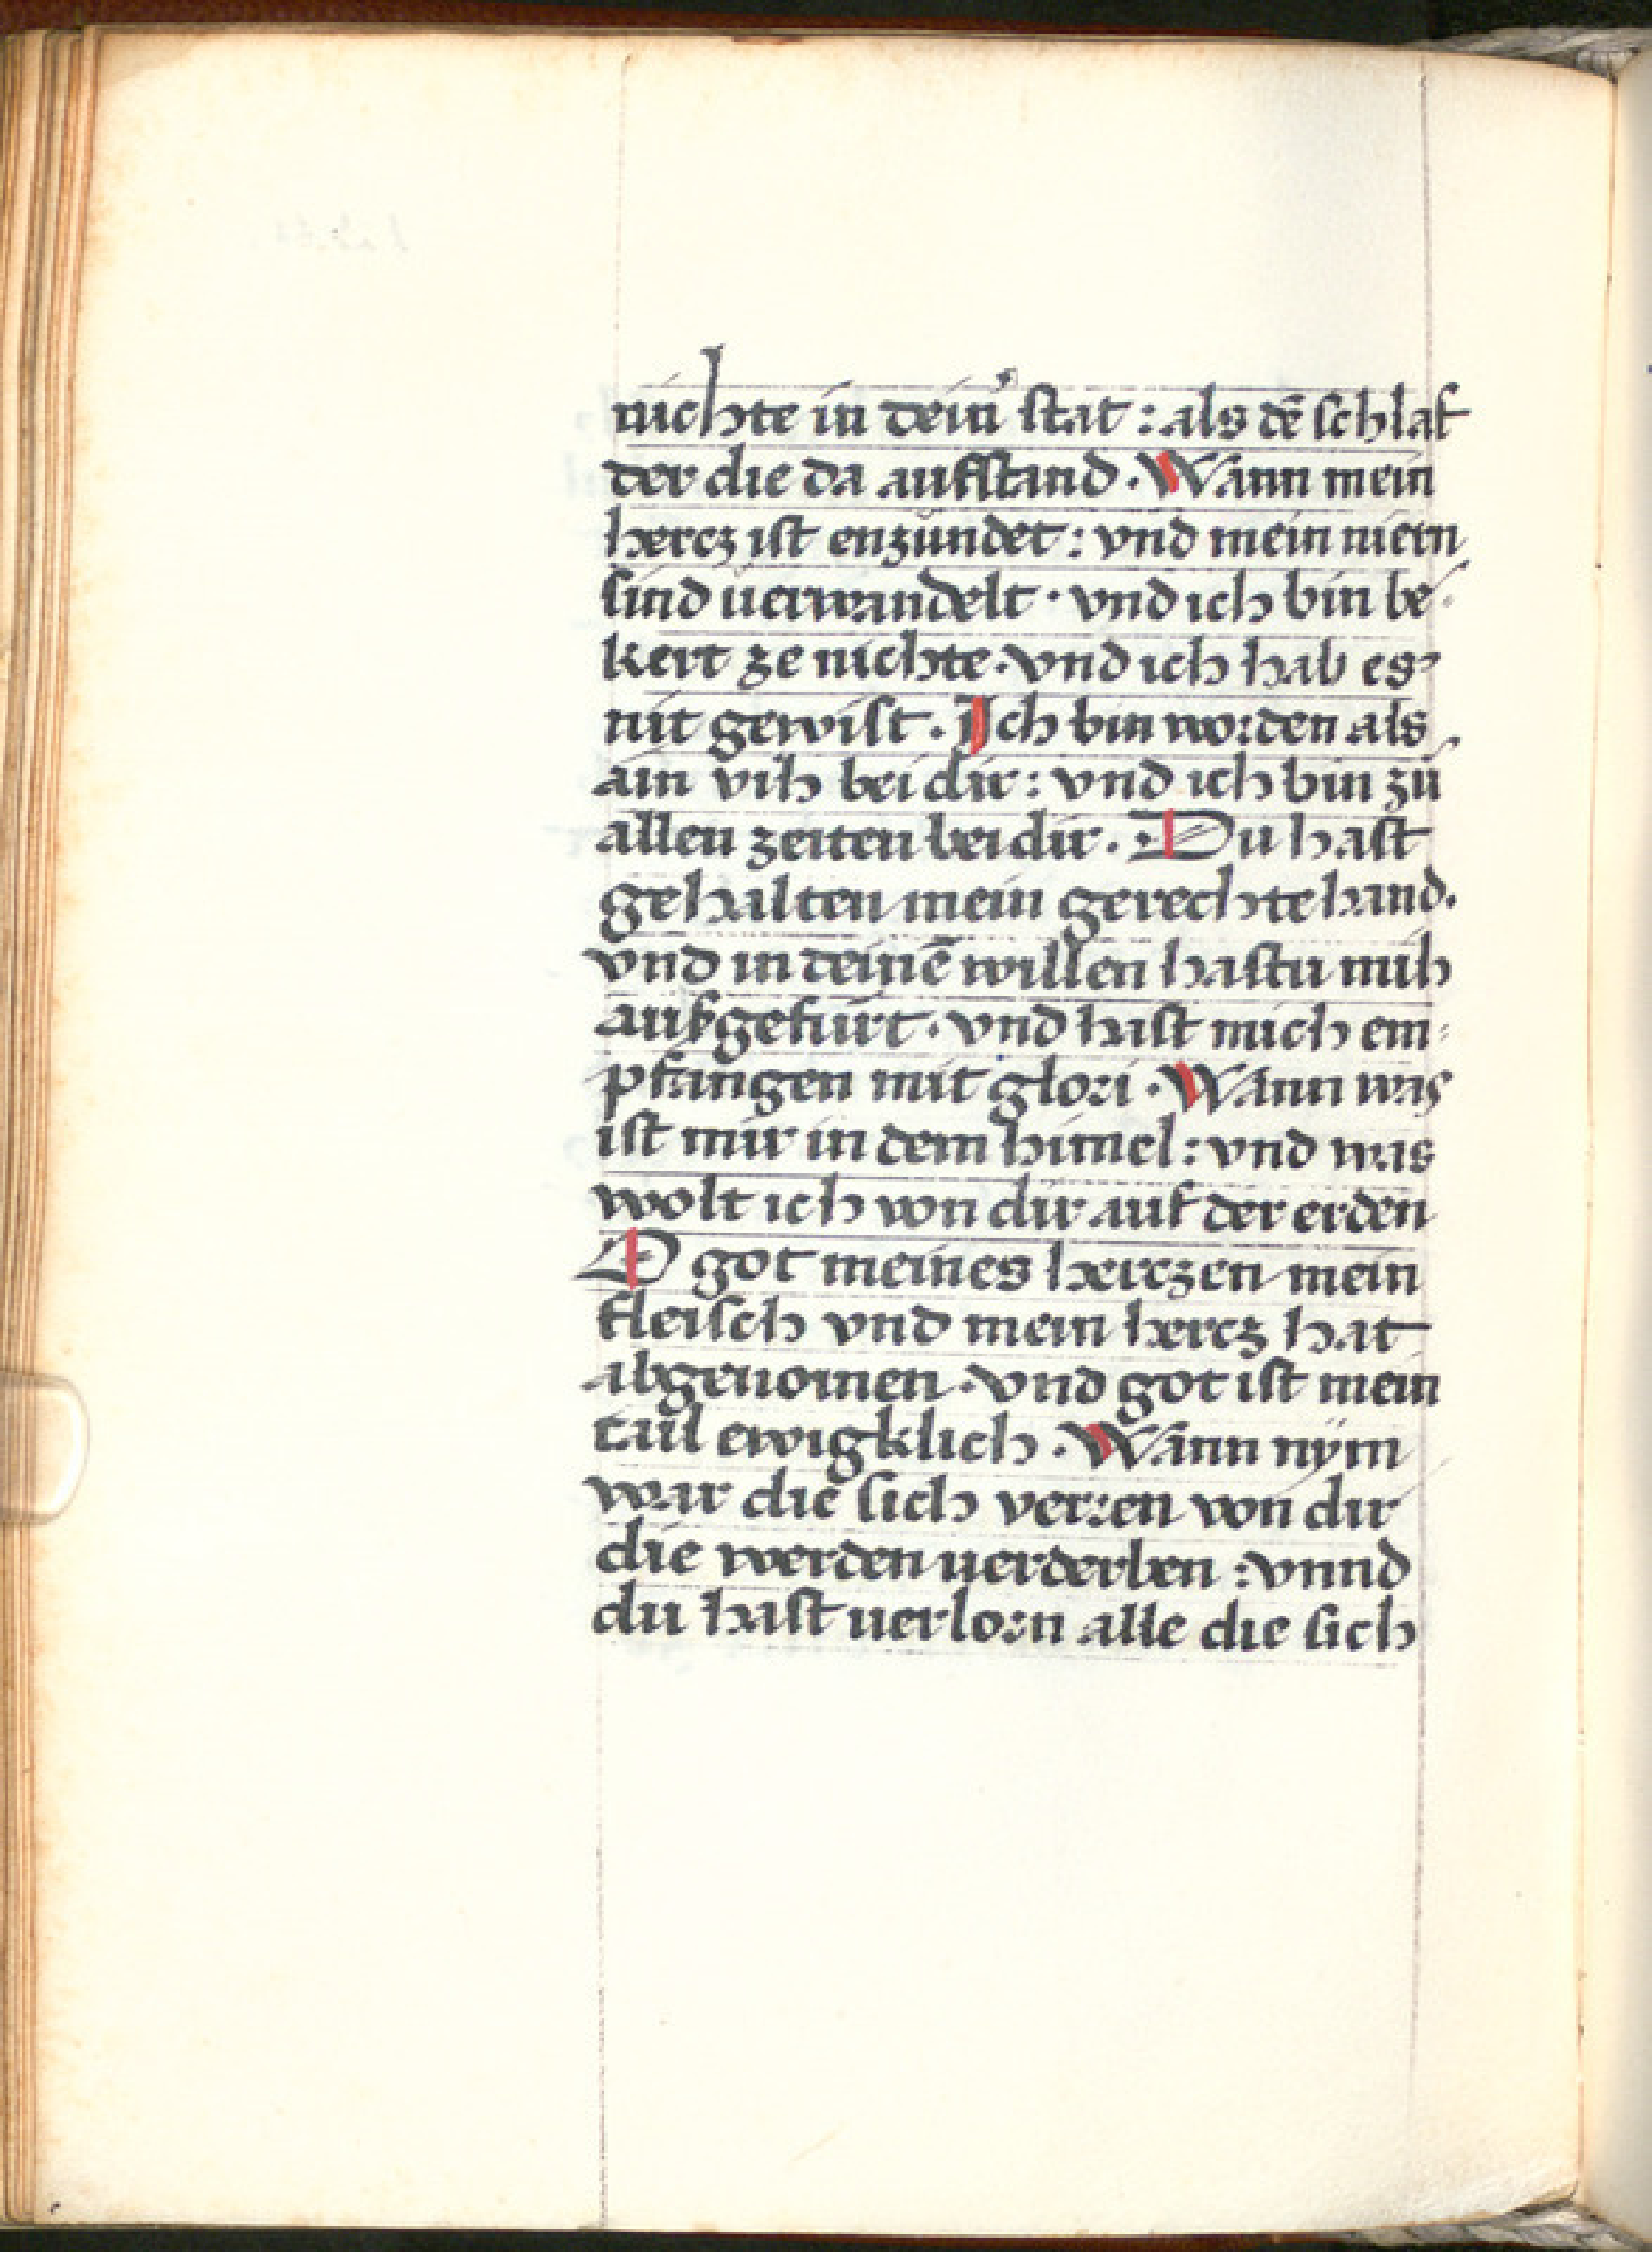 nichte in dein' stat : als dē schlaf
der die da aufstand . Wann mein
hercz ist enzündet : vnd mein niern
sind uerwandelt · vnd ich bin be
kert ze nichte · vnd ich hab es
nit gewist . Ich bin worden als
ain vih bei dir : vnd ich bin zů
allen zeiten bei dir . Du hast
gehalten mein gerechte hand .
vnd in deinē willen hastu mih
aufgefürt · vnd hast mich em
pfangen mit glori . Wann was
ist mir in dem himel : vnd was
wolt ich von dir auf der erden
O got meines herczen mein
fleisch vnd mein hercz hat
abgenomen · vnd got ist mein
tail ewigklich . Wann nÿm
war die sich verren von dir
die werden uerderben : vnnd
du hast uerlorn alle die sich